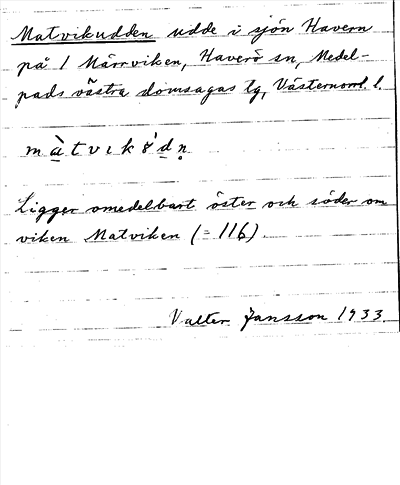 Matvikudden udde i sjön Havern
på 1 Märrviken, Haverö sn, Medel-
pads västra domsagas tg, Västernorrl. l.
Ligger omedelbart öster och söder om
viken Matviken (= 116).
Valter Jansson 1933.